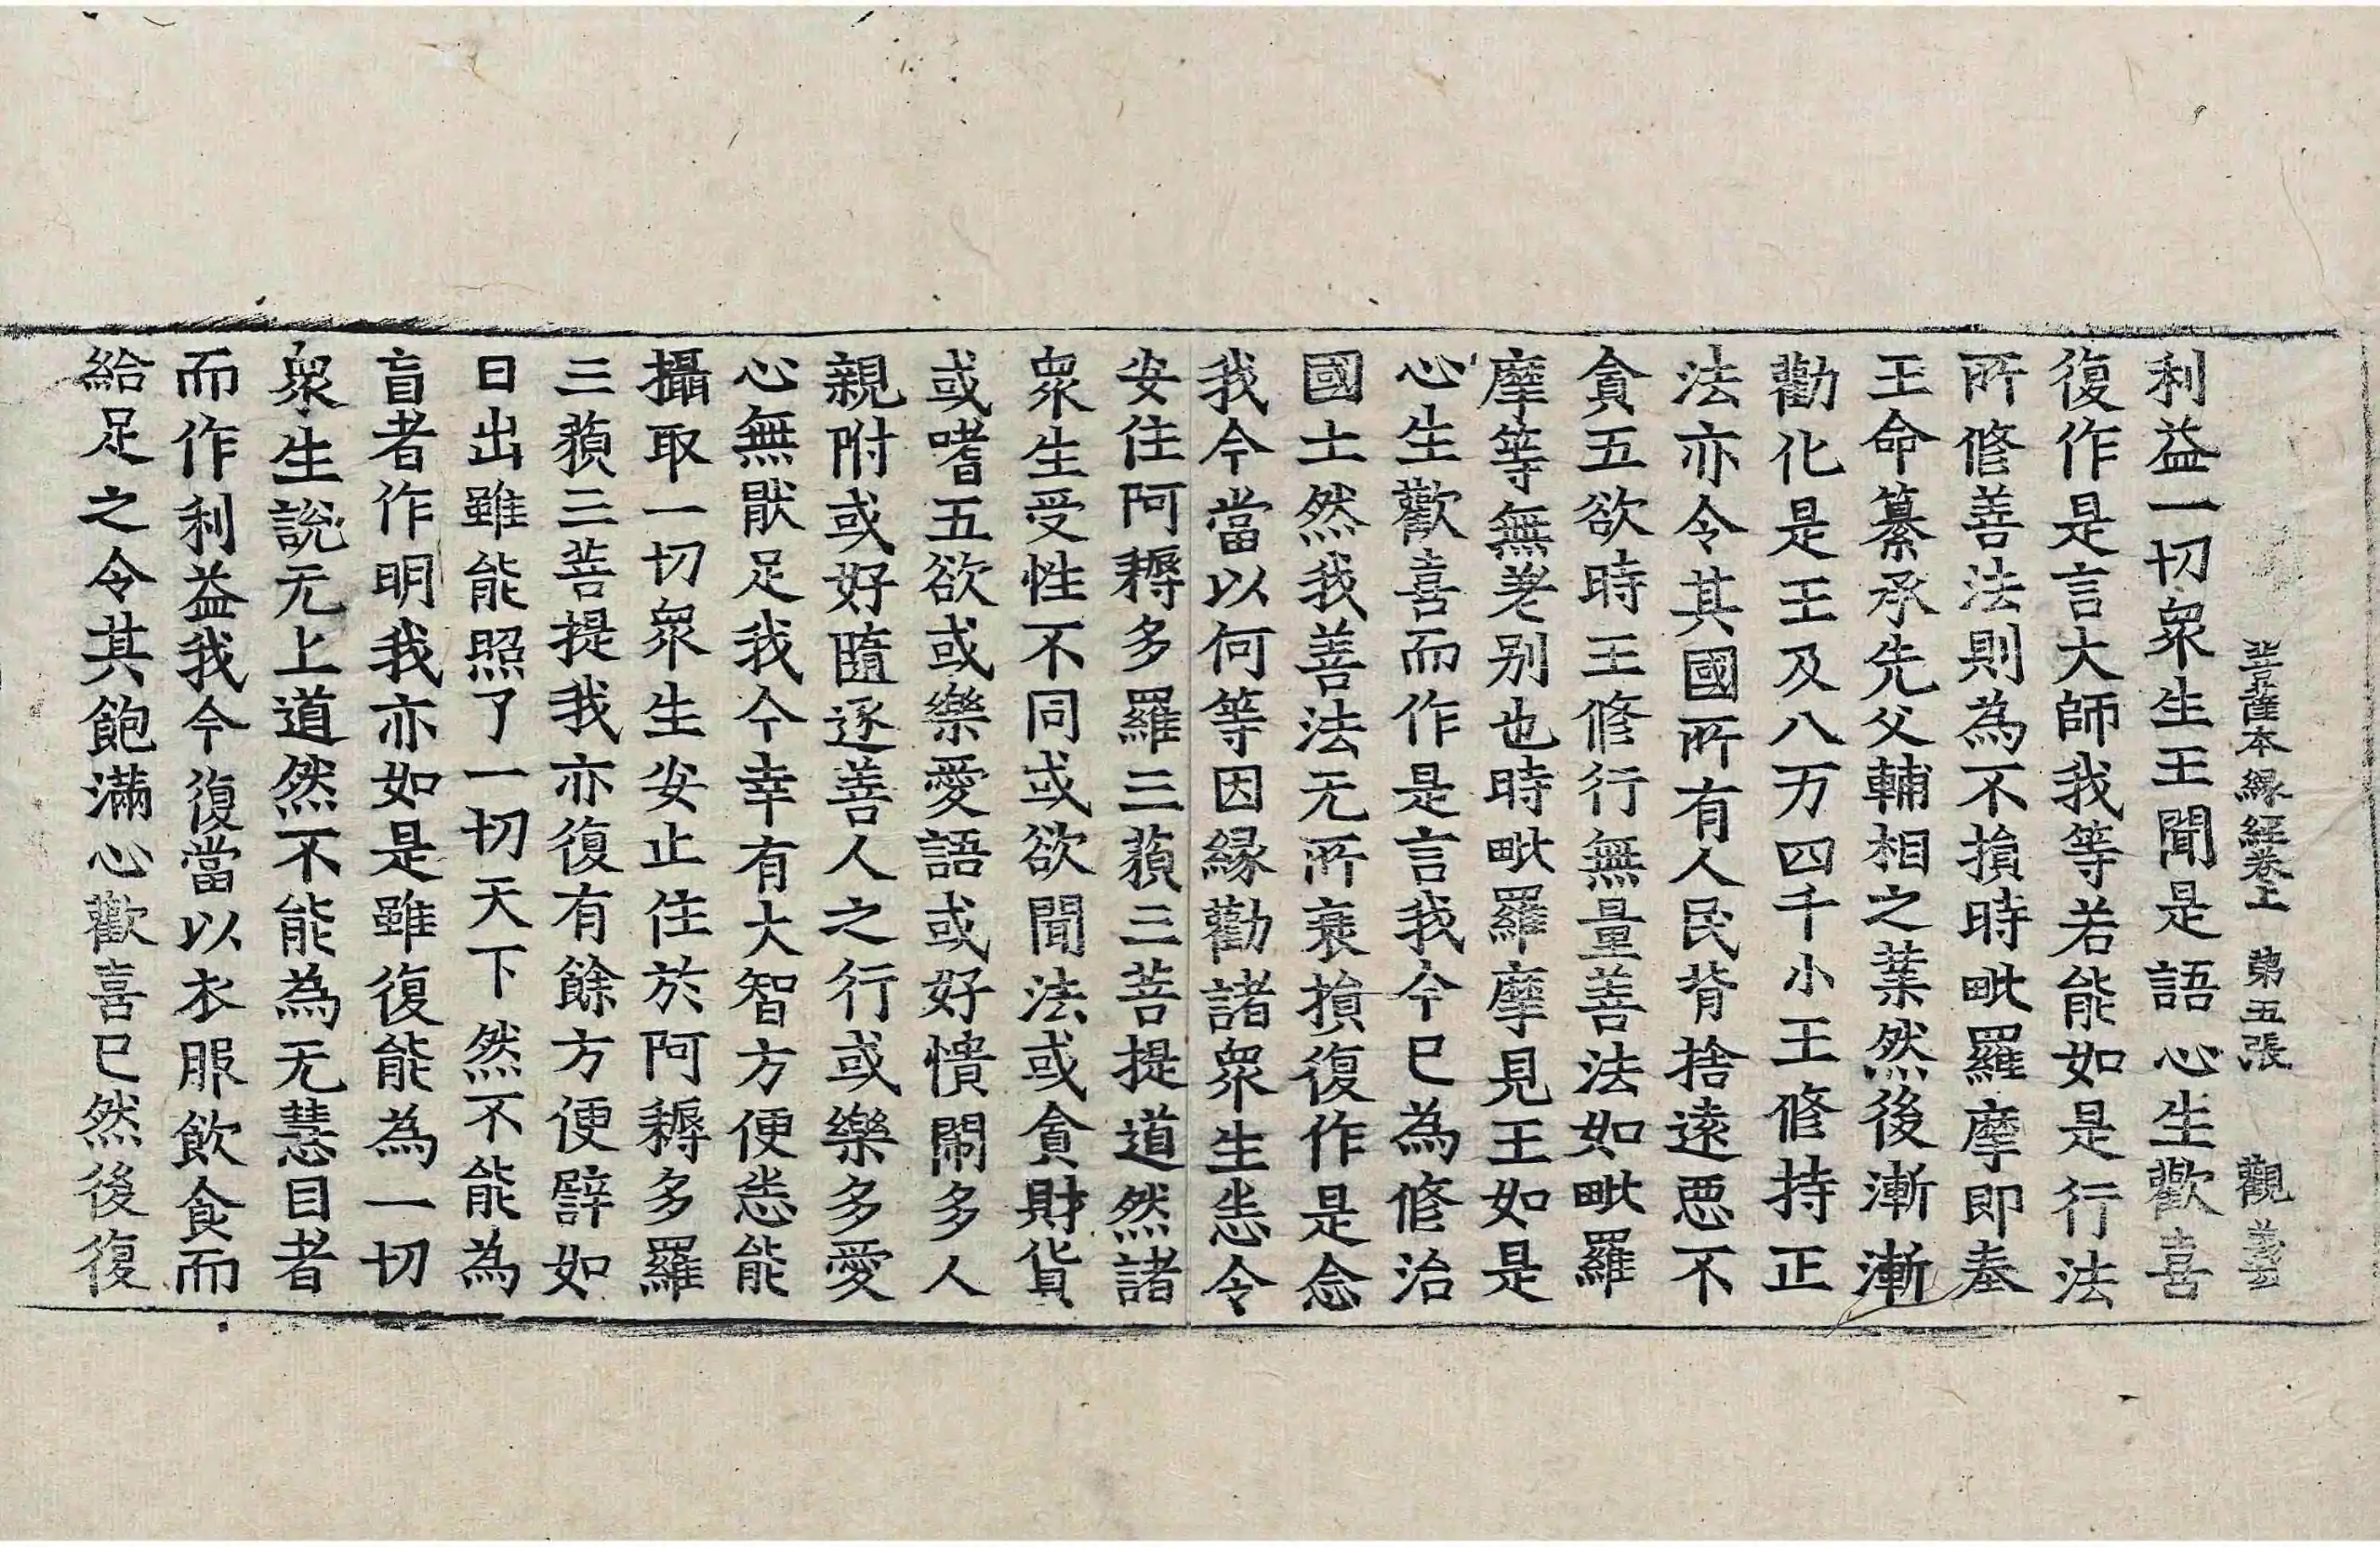 菩薩本緣經卷上 第五張 觀
利益一切衆生王聞是語心生歡喜
復作是言大師我等若能如是行法
所修善法則為不損時毗羅摩即奉
王命纂承先父輔相之業然後漸漸
勸化是王及八万四千小王修持正
法亦令其國所有人民背捨遠惡不
貪五欲時王修行無量善法如毗羅
摩等無差别也時毗羅摩見王如是
心生歡喜而作是言我今已為修治
國土然我善法无所衰損復作是念
我今當以何等因緣勸諸衆生悉令
安住阿耨多羅三藐三菩提道然諸
衆生受性不同或欲聞法或貪財貨
或嗜五欲或樂愛語或好憒閙多人
親附或好隨逐善人之行或樂多愛
心無猒足我今幸有大智方便悉能
攝取一切衆生安止住於阿耨多羅
三藐三菩提我亦復有餘方便譬如
日出雖能照了一切天下然不能為
盲者作明我亦如是雖復能為一切
衆生說无上道然不能為无慧目者
而作利益我今復當以衣服飲食而
給足之令其飽滿心歡喜已然後復